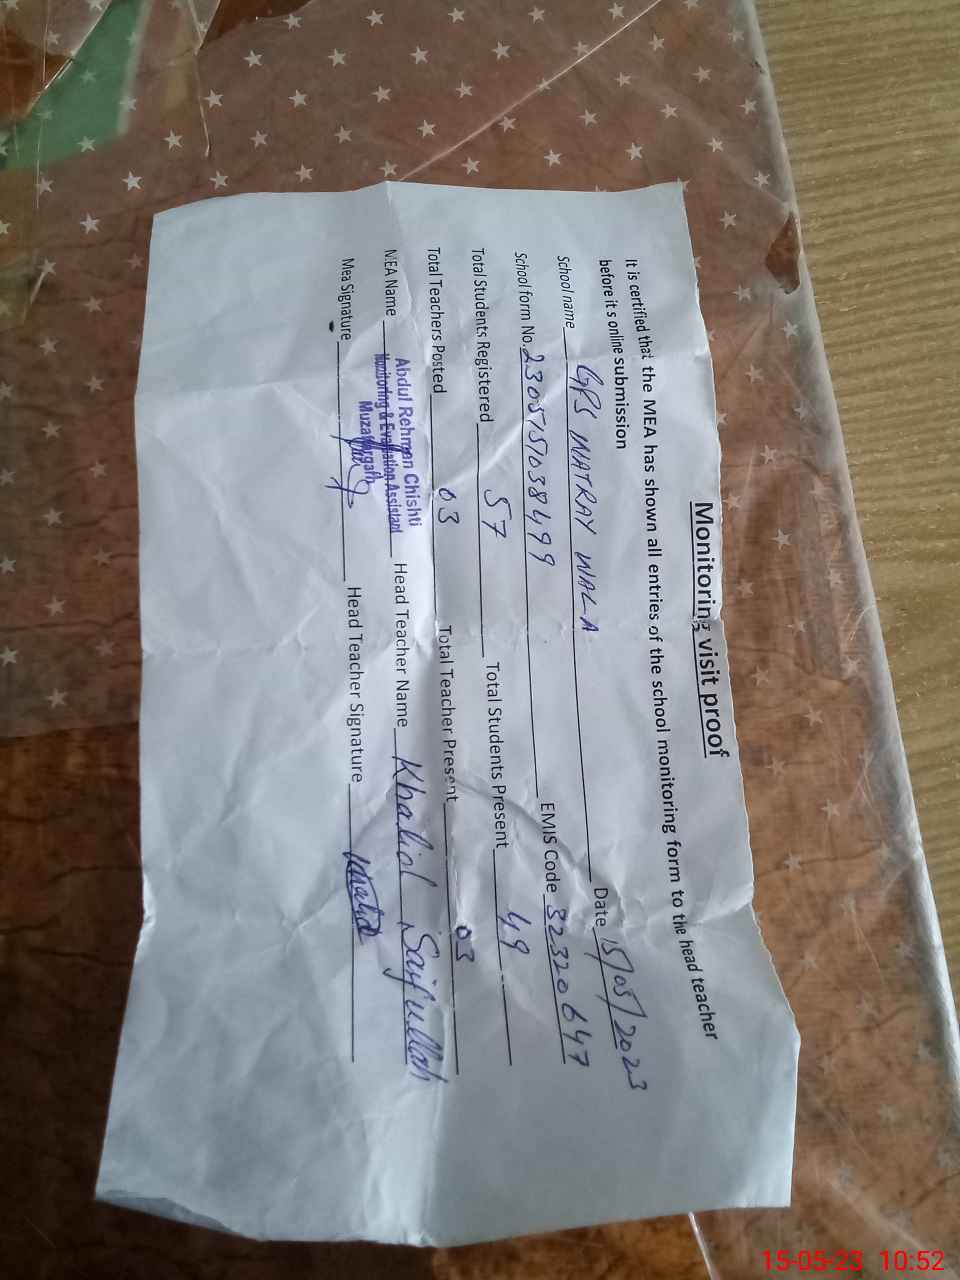 Monitoring visit proof
It is certified that the MEA has shown all entries of the school monitoring form to the head teacher
before it s online submission
School name GPS WATRAY WALA Date 15/05/2023
School form No. 2305151038499 EMIS Code 32320647
Total Students Registered 57 Total Students Present 49
Total Teachers Posted 03 Total Teacher Present 03
MEA Name Abdul Rehman Chishti Head Teacher Name Khalid Saifullah
Monitoring & Evaluation Assistant
Muzaffargarh
Mea Signature Head Teacher Signature Khalid
15-05-23 10:52